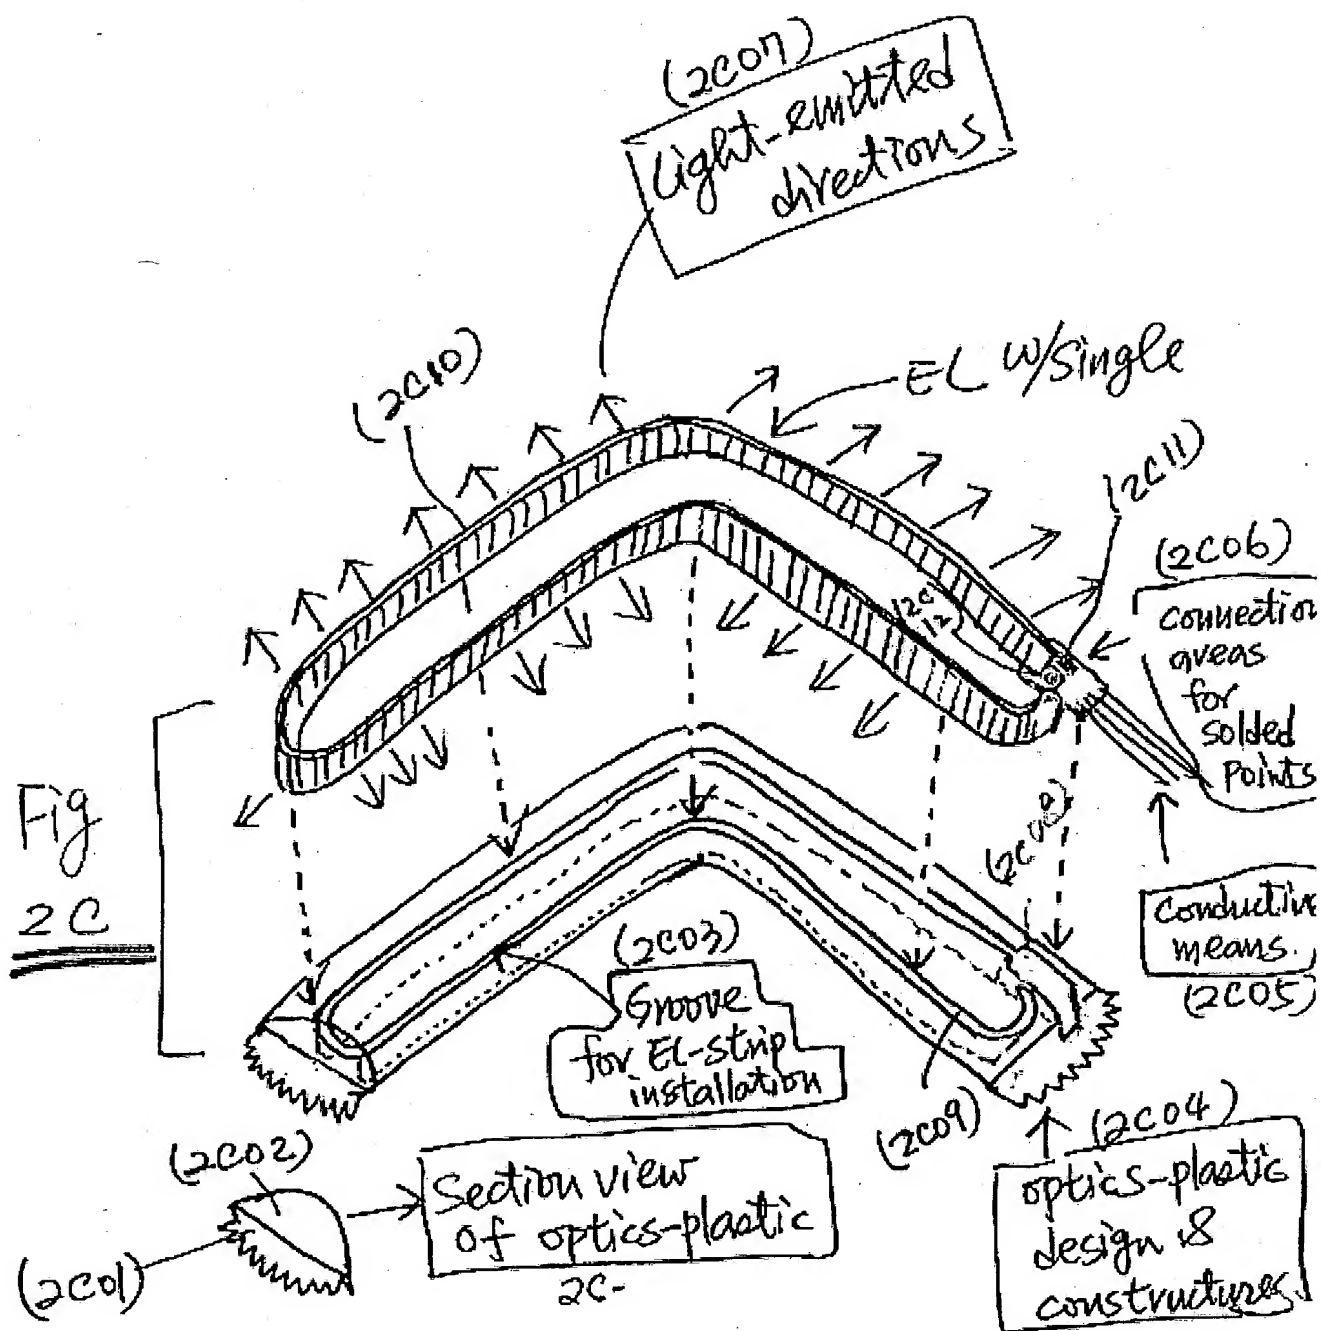 (2C07)
Light-emitted
directions
(2C10)
EL W/Single
(2C11)
(2C06)
connection
areas
for
solded
points
(2C12)
Fig
2C
(2C08)
conductive
means.
(2C05)
(2C03)
Groove
for EL-strip
installation
(2C09)
(2C04)
optics-plastic
design &
constructures
(2C02)
Section view
of optics-plastic
2C-
(2C01)